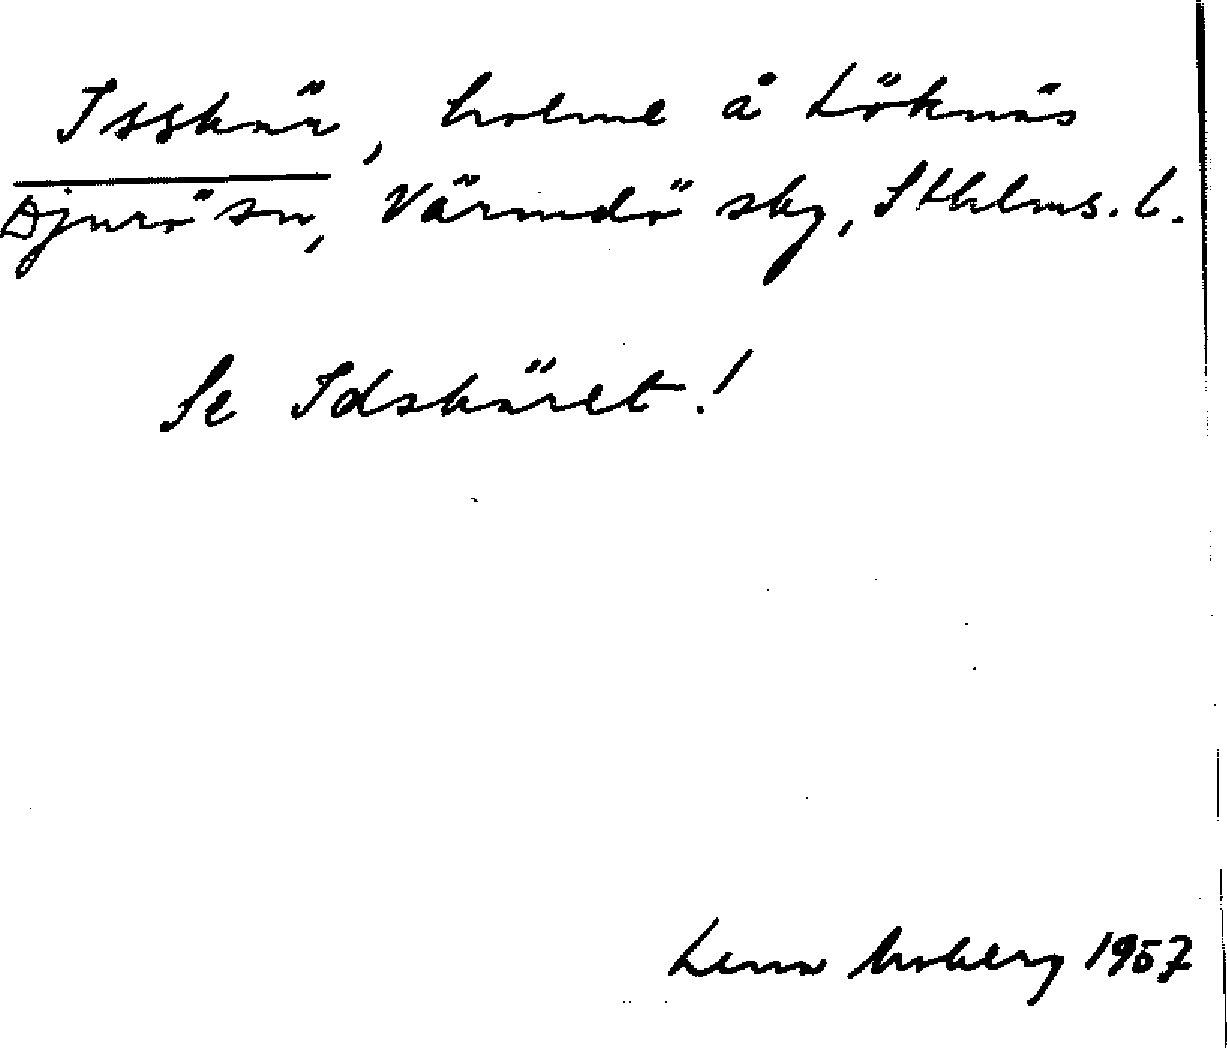 Isskär, holme å Löknäs
Djurö sn, Värmdö skg, Sthlms. l.
Se Idskäret!
Lena Moberg 1967